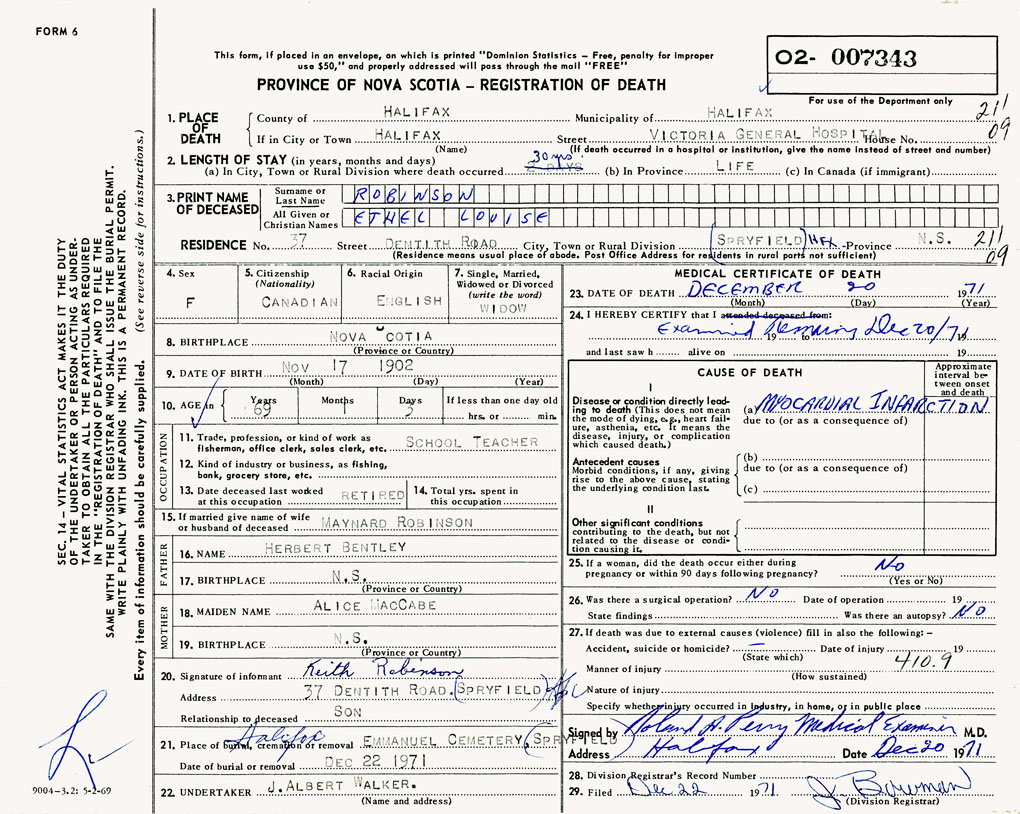 FORM 6
This form, if placed in an envelope, on which is printed "Dominion Statistics – Free, penalty for improper
use $50," and properly addressed will pass through the mail "FREE"
PROVINCE OF NOVA SCOTIA – REGISTRATION OF DEATH
O2- 007343
For use of the Department only
211
09
1. PLACE OF DEATH
County of HALIFAX Municipality of HALIFAX
If in City or Town HALIFAX Street VICTORIA GENERAL HOSPITAL House No.
(Name) (If death occurred in a hospital or institution, give the name instead of street and number)
2. LENGTH OF STAY (in years, months and days)
(a) In City, Town or Rural Division where death occurred 30 yrs. (b) In Province LIFE (c) In Canada (if immigrant)
3. PRINT NAME OF DECEASED
Surname or Last Name ROBINSON
All Given or Christian Names ETHEL LOUISE
RESIDENCE No. 37 Street DENTITH ROAD City, Town or Rural Division (SPRYFIELD) HFX Province N.S. 211
09
(Residence means usual place of abode. Post Office Address for residents in rural parts not sufficient)
4. Sex
F
5. Citizenship
(Nationality)
CANADIAN
6. Racial Origin
ENGLISH
7. Single, Married,
Widowed or Divorced
(write the word)
WIDOW
8. BIRTHPLACE NOVA SCOTIA
(Province or Country)
9. DATE OF BIRTH NOV 17 1902
(Month) (Day) (Year)
10. AGE in Years Months Days If less than one day old
69 1 3 hrs. or min.
OCCUPATION
11. Trade, profession, or kind of work as
fisherman, office clerk, sales clerk, etc. SCHOOL TEACHER
12. Kind of industry or business, as fishing,
bank, grocery store, etc.
13. Date deceased last worked
at this occupation RETIRED
14. Total yrs. spent in
this occupation
15. If married give name of wife
or husband of deceased MAYNARD ROBINSON
FATHER
16. NAME HERBERT BENTLEY
17. BIRTHPLACE N.S.
(Province or Country)
MOTHER
18. MAIDEN NAME ALICE MACCABE
19. BIRTHPLACE N.S.
(Province or Country)
20. Signature of informant Keith Robinson
Address 37 DENTITH ROAD. (SPRYFIELD)
Relationship to deceased SON
21. Place of burial, cremation or removal EMMANUEL CEMETERY, (SPRYFIELD
Halifax
Date of burial or removal DEC 22 1971
22. UNDERTAKER J. ALBERT WALKER.
(Name and address)
MEDICAL CERTIFICATE OF DEATH
23. DATE OF DEATH DECEMBER 20 1971
(Month) (Day) (Year)
24. I HEREBY CERTIFY that I attended deceased from:
Examined Remains Dec 20/71
19 to 19
and last saw h alive on 19
CAUSE OF DEATH
Approximate
interval be-
tween onset
and death
I
Disease or condition directly lead-
ing to death (This does not mean
the mode of dying, e.g., heart fail-
ure, asthenia, etc. It means the
disease, injury, or complication
which caused death.)
(a) MYOCARDIAL INFARCTION
due to (or as a consequence of)
Antecedent causes
Morbid conditions, if any, giving
rise to the above cause, stating
the underlying condition last.
(b)
due to (or as a consequence of)
(c)
II
Other significant conditions
contributing to the death, but not
related to the disease or condi-
tion causing it.
25. If a woman, did the death occur either during
pregnancy or within 90 days following pregnancy? No
(Yes or No)
26. Was there a surgical operation? NO Date of operation 19
State findings Was there an autopsy? NO
27. If death was due to external causes (violence) fill in also the following: –
Accident, suicide or homicide? – Date of injury 19
(State which) 410.9
Manner of injury
(How sustained)
Nature of injury
Specify whether injury occurred in Industry, in home, or in public place
Signed by Roland A. Perry Medical Examiner M.D.
Address Halifax Date Dec 20 1971
28. Division Registrar's Record Number
29. Filed Dec 22 1971 J. Bowman
(Division Registrar)
SEC. 14 – VITAL STATISTICS ACT MAKES IT THE DUTY
OF THE UNDERTAKER OR PERSON ACTING AS UNDER-
TAKER TO OBTAIN ALL THE PARTICULARS REQUIRED
IN THE "REGISTRATION OF DEATH" AND TO FILE THE
SAME WITH THE DIVISION REGISTRAR WHO SHALL ISSUE THE BURIAL PERMIT.
WRITE PLAINLY WITH UNFADING INK. THIS IS A PERMANENT RECORD.
Every item of information should be carefully supplied. (See reverse side for instructions.)
9004–3.2: 5-2-69